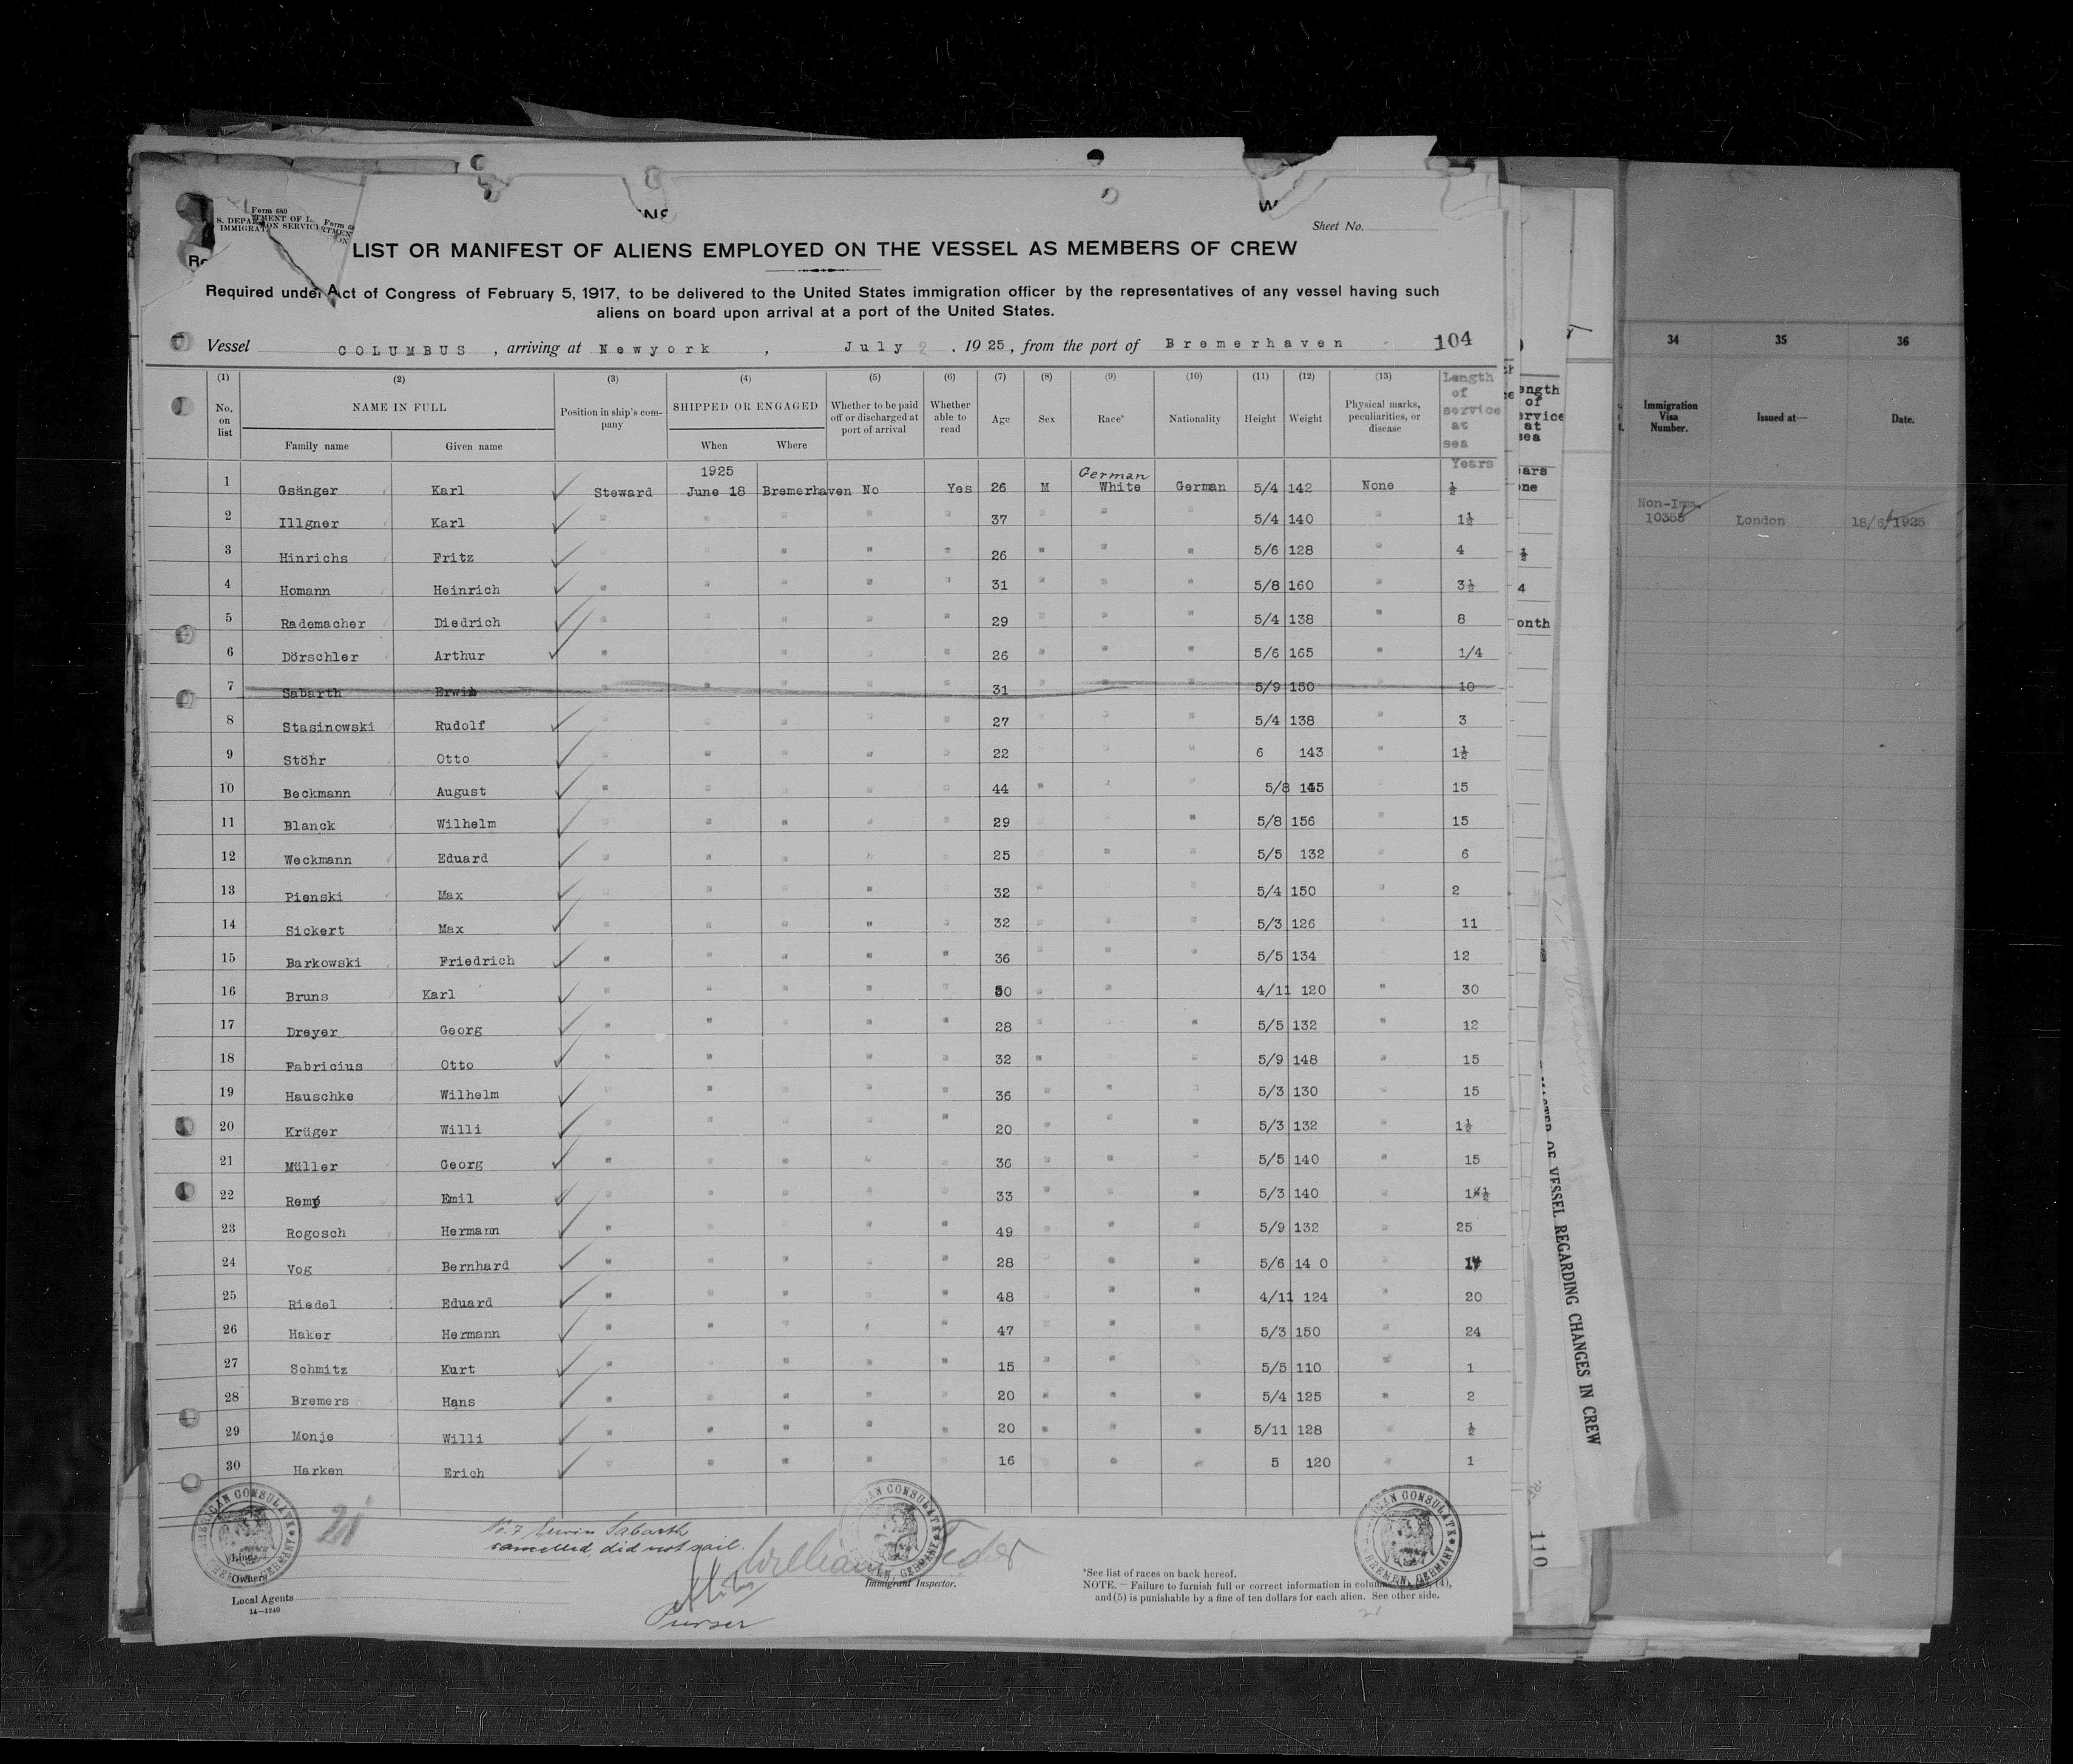 Form 680
S. DEPARTMENT OF L
IMMIGRATION SERVICE
Sheet No.
LIST OR MANIFEST OF ALIENS EMPLOYED ON THE VESSEL AS MEMBERS OF CREW
Required under Act of Congress of February 5, 1917, to be delivered to the United States immigration officer by the representatives of any vessel having such
aliens on board upon arrival at a port of the United States.
Vessel COLUMBUS, arriving at Newyork, July 2, 1925, from the port of Bremerhaven 104
(1) (2) (3) (4) (5) (6) (7) (8) (9) (10) (11) (12) (13)
No. on list NAME IN FULL Position in ship's company SHIPPED OR ENGAGED Whether to be paid off or discharged at port of arrival Whether able to read Age Sex Race* Nationality Height Weight Physical marks, peculiarities, or disease Length of service at sea
Family name Given name When Where
1925 German Years
1 Gsänger Karl Steward June 18 Bremerhaven No Yes 26 M White German 5/4 142 None ½
2 Illgner Karl " " " " " 37 " " " 5/4 140 " 1½
3 Hinrichs Fritz " " " " " 26 " " " 5/6 128 " 4
4 Homann Heinrich " " " " " 31 " " " 5/8 160 " 3½
5 Rademacher Diedrich " " " " " 29 " " " 5/4 138 " 8
6 Dörschler Arthur " " " " " 26 " " " 5/6 165 " 1/4
7 Sabarth Erwin " " " " " 31 " " " 5/9 150 " 10
8 Stasinowski Rudolf " " " " " 27 " " " 5/4 138 " 3
9 Stöhr Otto " " " " " 22 " " " 6 143 " 1½
10 Beckmann August " " " " " 44 " " " 5/8 145 " 15
11 Blanck Wilhelm " " " " " 29 " " " 5/8 156 " 15
12 Weckmann Eduard " " " " " 25 " " " 5/5 132 " 6
13 Pienski Max " " " " " 32 " " " 5/4 150 " 2
14 Sickert Max " " " " " 32 " " " 5/3 126 " 11
15 Barkowski Friedrich " " " " " 36 " " " 5/5 134 " 12
16 Bruns Karl " " " " " 50 " " " 4/11 120 " 30
17 Dreyer Georg " " " " " 28 " " " 5/5 132 " 12
18 Fabricius Otto " " " " " 32 " " " 5/9 148 " 15
19 Hauschke Wilhelm " " " " " 36 " " " 5/3 130 " 15
20 Krüger Willi " " " " " 20 " " " 5/3 132 " 1½
21 Müller Georg " " " " " 36 " " " 5/5 140 " 15
22 Remp Emil " " " " " 33 " " " 5/3 140 " 1½
23 Rogosch Hermann " " " " " 49 " " " 5/9 132 " 25
24 Vog Bernhard " " " " " 28 " " " 5/6 14 0 "
25 Riedel Eduard " " " " " 48 " " " 4/11 124 " 20
26 Haker Hermann " " " " " 47 " " " 5/3 150 " 24
27 Schmitz Kurt " " " " " 15 " " " 5/5 110 " 1
28 Bremers Hans " " " " " 20 " " " 5/4 125 " 2
29 Monje Willi " " " " " 20 " " " 5/11 128 " ½
30 Harken Erich " " " " " 16 " " " 5 120 " 1
AMERICAN CONSULATE BREMEN, GERMANY
21
No. 7 Erwin Sabarth
cancelled, did not sail.
Purser
William
Immigrant Inspector.
Line
Owners
Local Agents
14—1240
*See list of races on back hereof.
NOTE.—Failure to furnish full or correct information in columns (4),
and (5) is punishable by a fine of ten dollars for each alien. See other side.
34 35 36
Immigration Visa Number. Issued at— Date.
Non-Imm.
10355 London 18/6/1925
ength
of
ervice
at
sea
ears
one
½
4
onth
MASTER OF VESSEL REGARDING CHANGES IN CREW
110